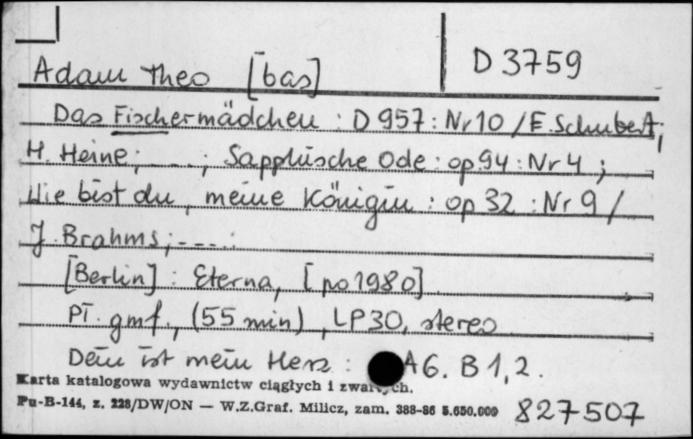 Adam Theo [bas]
D 3759
Das Fischermädchen : D 957 : Nr 10 / F. Schubert,
H. Heine; ...; Sapphische Ode : op 94 : Nr 4 ;
Wie bist du, meine Königin : op 32 : Nr 9 /
J. Brahms ; - - - .
[Berlin] : Eterna, [po 1980]
Pł. gmf., (55 min), LP30, stereo
Dein ist mein Herz : A6. B 1, 2.
Karta katalogowa wydawnictw ciągłych i zwartych.
Pu-B-144, z. 228/DW/ON — W.Z.Graf. Milicz, zam. 388-86 5.650.000
827507